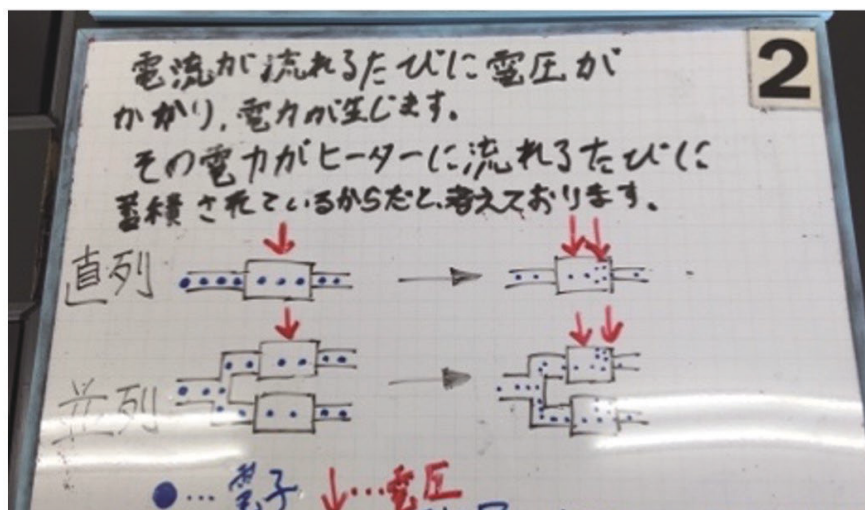 2
電流が流れるたびに電圧が
かかり、電力が生じます。
その電力がヒーターに流れるたびに
蓄積されているからだと、考えております。
直列
並列
●…電子 ↓…電圧